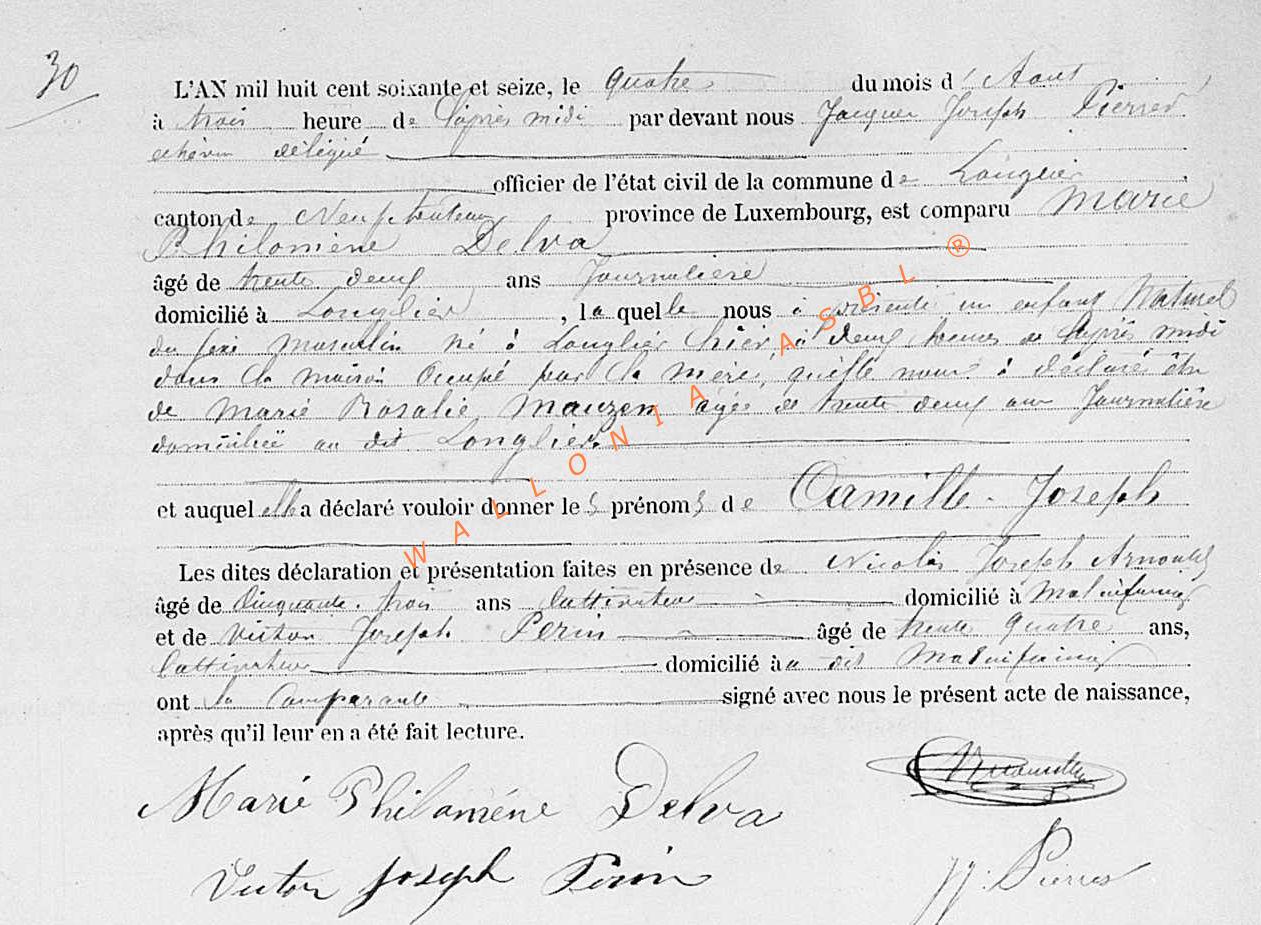 30
L'AN mil huit cent soixante et seize, le quatre du mois d' Aout
à trois heure de l'après midi par devant nous Jacques Joseph Pierres
echevin délégué
officier de l'état civil de la commune de Longlier
canton de Neufchateau province de Luxembourg, est comparu Marie
Philomène Delva
âgé de trente deux ans Journalière
domicilié à Longlier, la quelle nous à présenté un enfant Naturel
du sexe masculin né à Longlier hier à deux heures de l'après midi
dans la maison Occupé par la mère, qu'elle nous à déclaré être
de Marie Rosalie Mauzen agée de trente deux ans Journalière
domiciliée au dit Longlier.
et auquel elle a déclaré vouloir donner les prénoms de Camille Joseph
Les dites déclaration et présentation faites en présence de Nicolas Joseph Arnould
âgé de Cinquante trois ans Cultivateur domicilié à
et de Victor Joseph Perin âgé de trente quatre ans,
Cultivateur domicilié à dit
ont la Comparante signé avec nous le présent acte de naissance,
après qu'il leur en a été fait lecture.
Marie Philomène Delva
Victor Joseph Perin
JJ. Pierres
WALLONIA ASBL ®